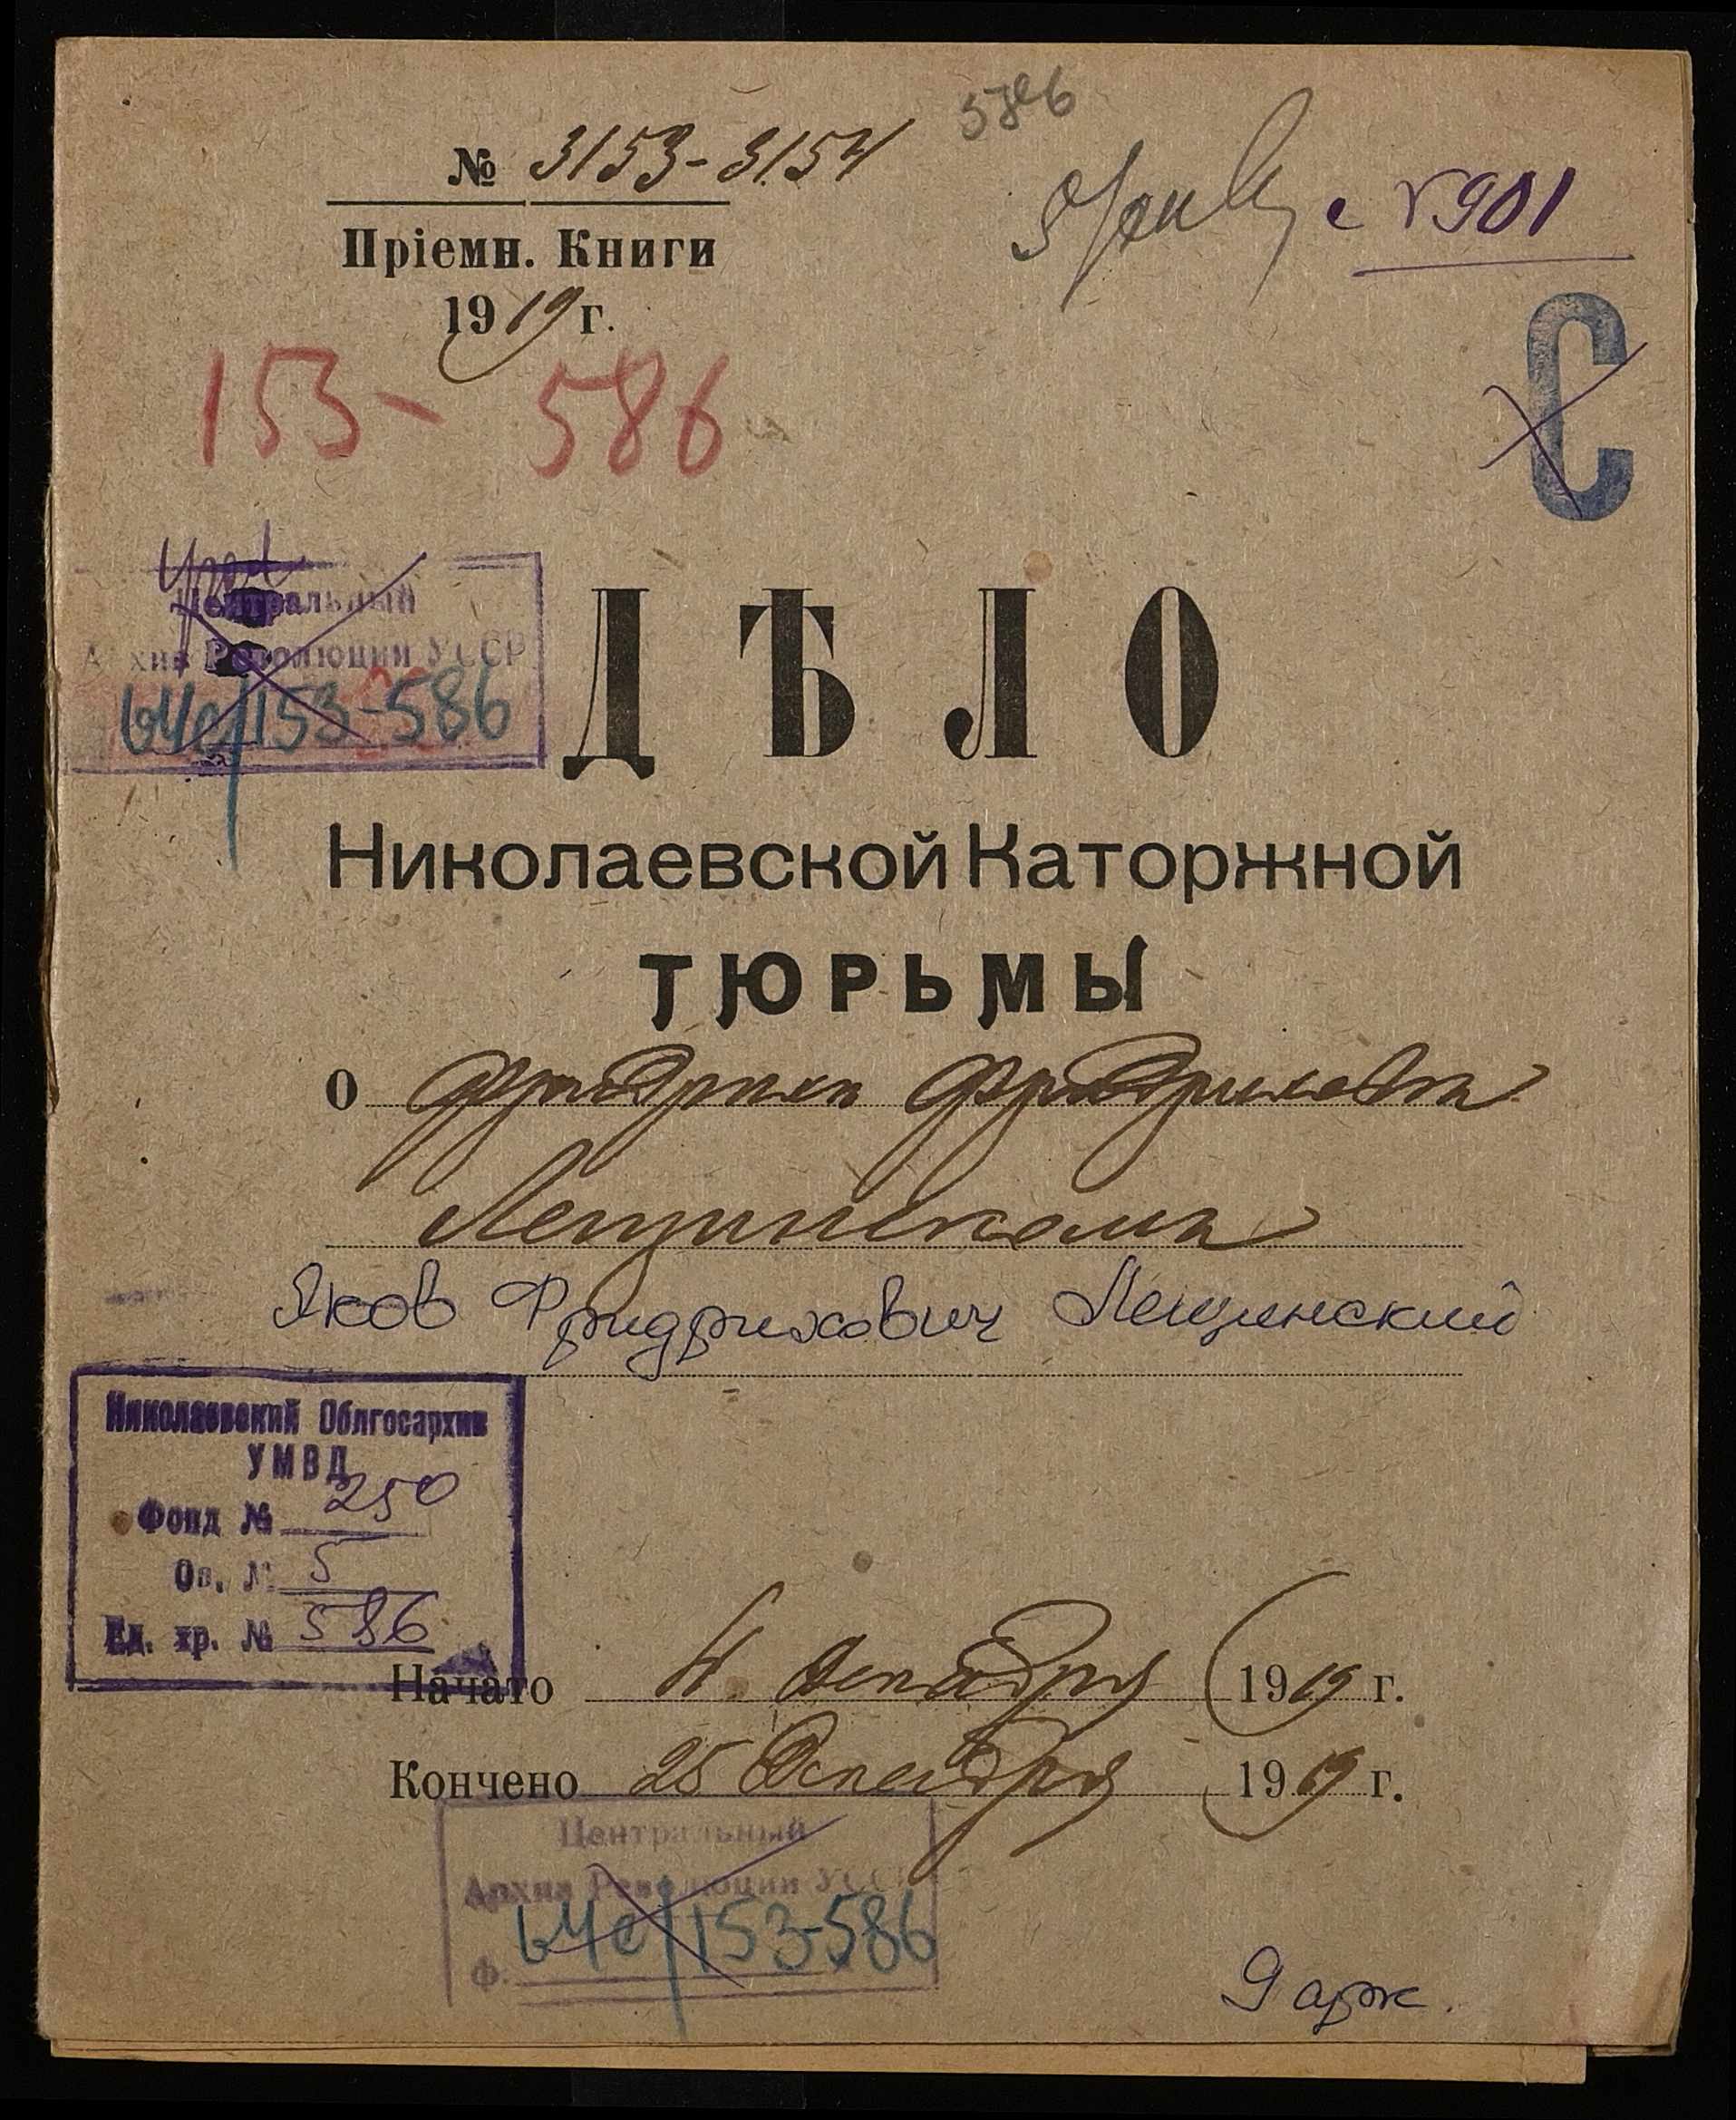 586
№ 3153-3154
с №901
Пріемн. Книги
1919 г.
С
153- 586
Центральный
Архив Революции УССР
64с/153-586
ДѢЛО
Николаевской Каторжной
ТЮРЬМЫ
о Фридрихѣ Фридриховѣ
Лещинскомъ
Яков Фридрихович Лещинский
Николаевский Облгосархив
УМВД
Фонд № 250
Оп. № 5
Ед. хр. № 586
Начато 4 декабря 1919 г.
Кончено 25 Декабря 1919 г.
Центральный
Архив Революции УССР
64с/153-586
Ф.
9 арк.